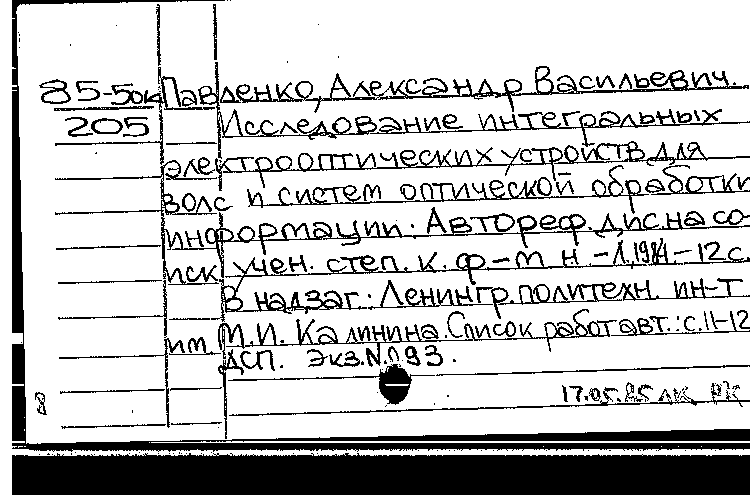 85-5ок Павленко, Александр Васильевич.
205 Исследование интегральных
электрооптических устройств для
волс и систем оптической обработки
информации: Автореф. дис. на со-
иск. учен. степ. к. ф-м н. - Л, 1984 - 12 с.
В надзаг.: Ленингр. политехн. ин-т
им. М.И. Калинина. Список работ авт.: с. 11-12
ДСП. Экз. N. 093.
8
17.05.85 лк РК